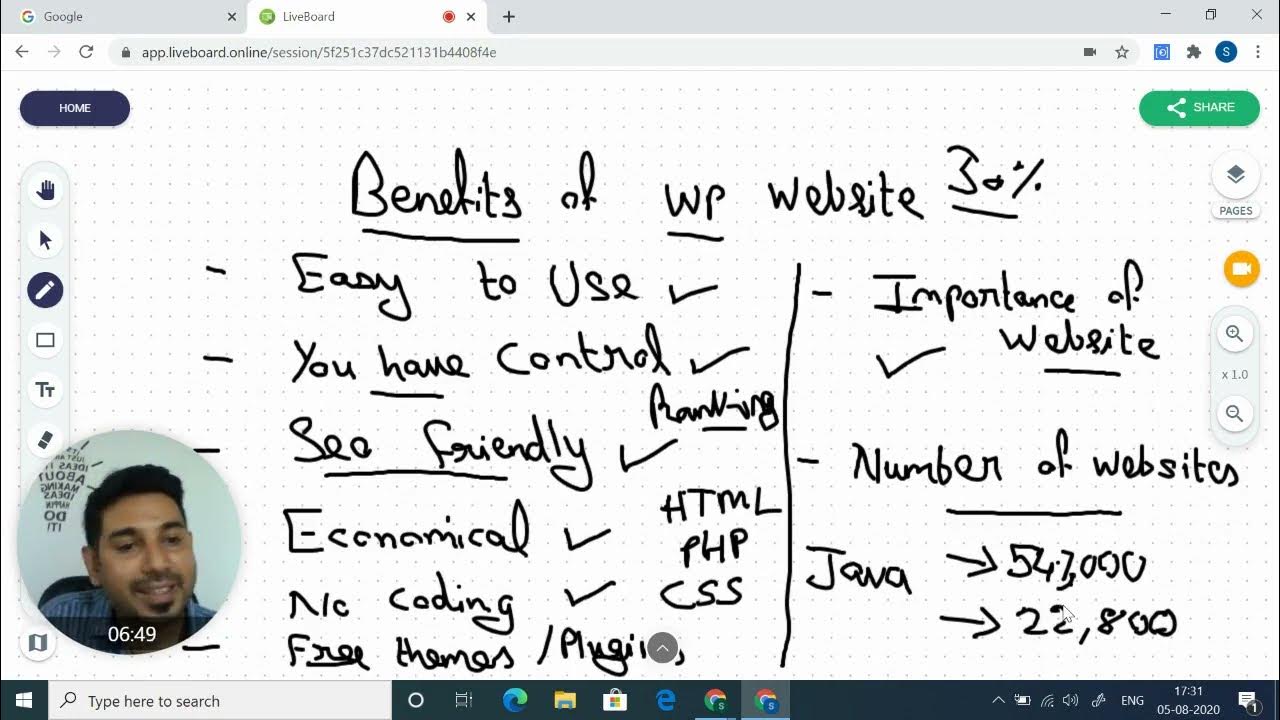 Google
LiveBoard
app.liveboard.online/session/5f251c37dc521131b4408f4e
S
HOME
SHARE
PAGES
Benefits of WP Website 30%
- Easy to Use ✓
- You have Control ✓
Ranking
- Seo friendly ✓
Economical ✓
HTML
PHP
CSS
No Coding ✓
- Free themes /Plugins
- Importance of
Website
✓
- Number of websites
Java → 547,000
→ 22,800
x 1.0
Tт
JUST AN
IDEAS IT
ABOUT
MAKING
IDEAS
HAPPEN
DO
IT!
06:49
Type here to search
ENG
17:31
05-08-2020
1